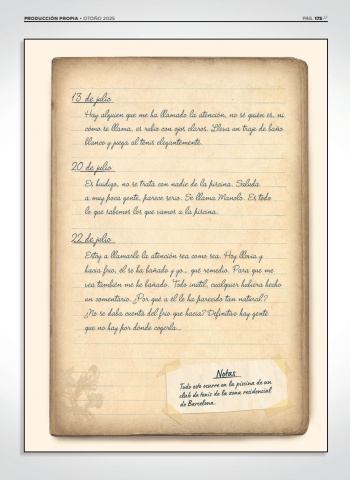 PRODUCCIÓN PROPIA • OTOÑO 2025
PÁG. 175
13 de julio
Hay alguien que me ha llamado la atención, no sé quién es, ni
como se llama, es rubio con ojos claros. Lleva un traje de baño
blanco y juega al tenis elegantemente.
20 de julio
Es huidizo, no se trata con nadie de la piscina. Saluda
a muy poca gente, parece serio. Se llama Manolo. Es todo
lo que sabemos los que vamos a la piscina.
22 de julio
Estoy a llamarle la atención sea como sea. Hoy llovía y
hacía frío, él se ha bañado y yo... qué remedio. Para que me
vea también me he bañado. Todo inútil, cualquier hubiera hecho
un comentario. ¿Por qué a él le ha parecido tan natural?
¿No se daba cuenta del frío que hacía? Definitivo hay gente
que no hay por donde cogerla...
Notas
Todo esto ocurre en la piscina de un
club de tenis de la zona residencial
de Barcelona.